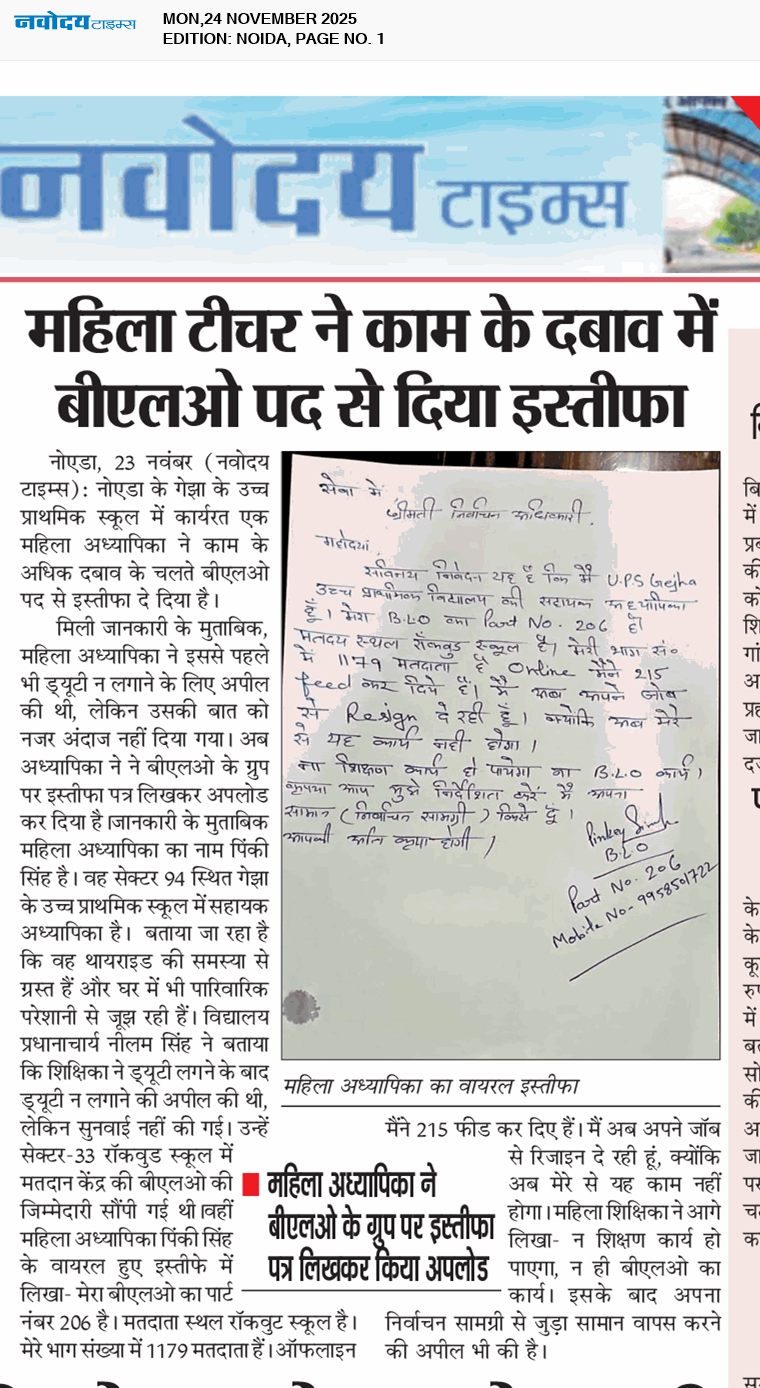 नवोदय टाइम्स
MON,24 NOVEMBER 2025
EDITION: NOIDA, PAGE NO. 1
नवोदय टाइम्स
महिला टीचर ने काम के दबाव में
बीएलओ पद से दिया इस्तीफा
नोएडा, 23 नवंबर (नवोदय
टाइम्स): नोएडा के गेझा के उच्च
प्राथमिक स्कूल में कार्यरत एक
महिला अध्यापिका ने काम के
अधिक दबाव के चलते बीएलओ
पद से इस्तीफा दे दिया है।
मिली जानकारी के मुताबिक,
महिला अध्यापिका ने इससे पहले
भी ड्यूटी न लगाने के लिए अपील
की थी, लेकिन उसकी बात को
नजर अंदाज नहीं दिया गया। अब
अध्यापिका ने ने बीएलओ के ग्रुप
पर इस्तीफा पत्र लिखकर अपलोड
कर दिया है।जानकारी के मुताबिक
महिला अध्यापिका का नाम पिंकी
सिंह है। वह सेक्टर 94 स्थित गेझा
के उच्च प्राथमिक स्कूल में सहायक
अध्यापिका है। बताया जा रहा है
कि वह थायराइड की समस्या से
ग्रस्त हैं और घर में भी पारिवारिक
परेशानी से जूझ रही हैं। विद्यालय
प्रधानाचार्य नीलम सिंह ने बताया
कि शिक्षिका ने ड्यूटी लगने के बाद
ड्यूटी न लगाने की अपील की थी,
लेकिन सुनवाई नहीं की गई। उन्हें
सेक्टर-33 रॉकवुड स्कूल में
मतदान केंद्र की बीएलओ की
जिम्मेदारी सौंपी गई थी।वहीं
महिला अध्यापिका पिंकी सिंह
के वायरल हुए इस्तीफे में
लिखा- मेरा बीएलओ का पार्ट
नंबर 206 है। मतदाता स्थल रॉकवुट स्कूल है।
मेरे भाग संख्या में 1179 मतदाता हैं। ऑफलाइन
सेवा में
श्रीमती निर्वाचन अधिकारी.
महोदया,
सविनय निवेदन यह है कि मैं U.P.S Gejha
उच्च प्राथमिक विद्यालय की सहायक अध्यापिका
हूँ। मेरा B.L.O का Part No. 206 है।
मतदय स्थल रॉकवुड स्कूल है। मेरी भाग सं०
में 1179 मतदाता है Online मैंने 215
feed कर दिये हैं। मैं अब अपने जॉब
से Resign दे रही हूँ। क्योंकि अब मेरे
से यह कार्य नही होगा।
ना शिक्षण कार्य हो पायेगा ना B.L.O कार्य।
कृपया आप मुझे निर्देशित करें मैं अपना
सामान (निर्वाचन सामग्री) किसे दूँ।
आपकी अति कृपा होगी।
Pinkey Singh
B.L.O
Part No. 206
Mobile No- 9958501722
महिला अध्यापिका का वायरल इस्तीफा
महिला अध्यापिका ने
बीएलओ के ग्रुप पर इस्तीफा
पत्र लिखकर किया अपलोड
मैंने 215 फीड कर दिए हैं। मैं अब अपने जॉब
से रिजाइन दे रही हूं, क्योंकि
अब मेरे से यह काम नहीं
होगा। महिला शिक्षिका ने आगे
लिखा- न शिक्षण कार्य हो
पाएगा, न ही बीएलओ का
कार्य। इसके बाद अपना
निर्वाचन सामग्री से जुड़ा सामान वापस करने
की अपील भी की है।